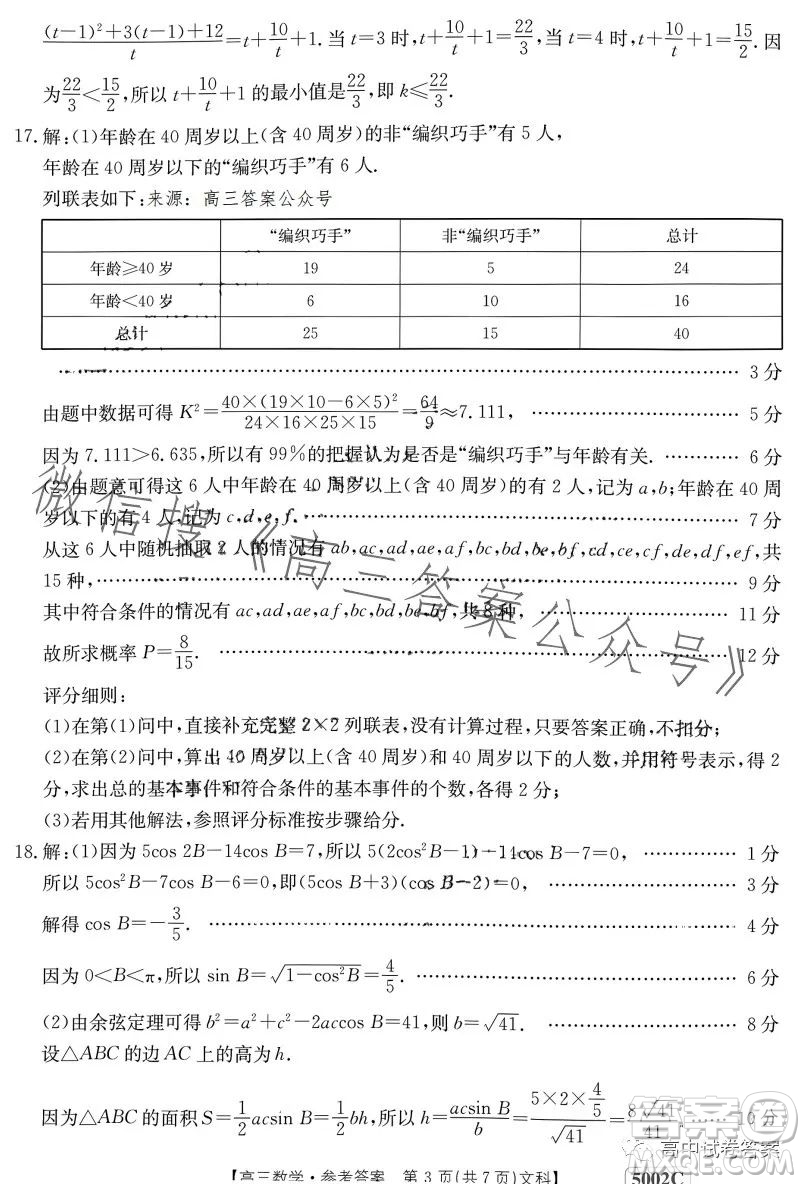 ((t-1)²+3(t-1)+12)/t=t+10/t+1.当 t=3 时,t+10/t+1=22/3;当 t=4 时,t+10/t+1=15/2.因
为22/3<15/2,所以 t+10/t+1 的最小值是22/3,即 k≤22/3.
17.解:(1)年龄在 40 周岁以上(含 40 周岁)的非“编织巧手”有 5 人,
年龄在 40 周岁以下的“编织巧手”有 6 人.
列联表如下:来源:高三答案公众号
“编织巧手” 非“编织巧手” 总计
年龄≥40 岁 19 5 24
年龄<40 岁 6 10 16
总计 25 15 40
………… 3 分
由题中数据可得 K²=40×(19×10-6×5)²/(24×16×25×15)=64/9≈7.111, ………… 5 分
因为 7.111>6.635,所以有 99%的把握认为是否是“编织巧手”与年龄有关. ………… 6 分
(2)由题意可得这 6 人中年龄在 40 周岁以上(含 40 周岁)的有 2 人,记为 a,b;年龄在 40 周
岁以下的有 4 人,记为 c,d,e,f. ………… 7 分
从这 6 人中随机抽取 2 人的情况有 ab,ac,ad,ae,af,bc,bd,be,bf,cd,ce,cf,de,df,ef,共
15 种, ………… 9 分
其中符合条件的情况有 ac,ad,ae,af,bc,bd,be,bf,共 8 种, ………… 11 分
故所求概率 P=8/15. ………… 12 分
评分细则:
(1)在第(1)问中,直接补充完整 2×2 列联表,没有计算过程,只要答案正确,不扣分;
(2)在第(2)问中,算出 40 周岁以上(含 40 周岁)和 40 周岁以下的人数,并用符号表示,得 2
分,求出总的基本事件和符合条件的基本事件的个数,各得 2 分;
(3)若用其他解法,参照评分标准按步骤给分.
18.解:(1)因为 5cos 2B-14cos B=7,所以 5(2cos²B-1)-14cos B-7=0, ………… 1 分
所以 5cos²B-7cos B-6=0,即(5cos B+3)(cos B-2)=0, ………… 3 分
解得 cos B=-3/5. ………… 4 分
因为 0<B<π,所以 sin B=√(1-cos²B)=4/5. ………… 6 分
(2)由余弦定理可得 b²=a²+c²-2accos B=41,则 b=√41. ………… 8 分
设△ABC 的边 AC 上的高为 h.
因为△ABC 的面积 S=1/2acsin B=1/2bh,所以 h=acsin B/b=(5×2×4/5)/√41=8√41/41, …… 10 分
【高三数学·参考答案 第 3 页(共 7 页)文科】 5002C
微信搜《高三答案公众号》
答案圈
高中试卷答案